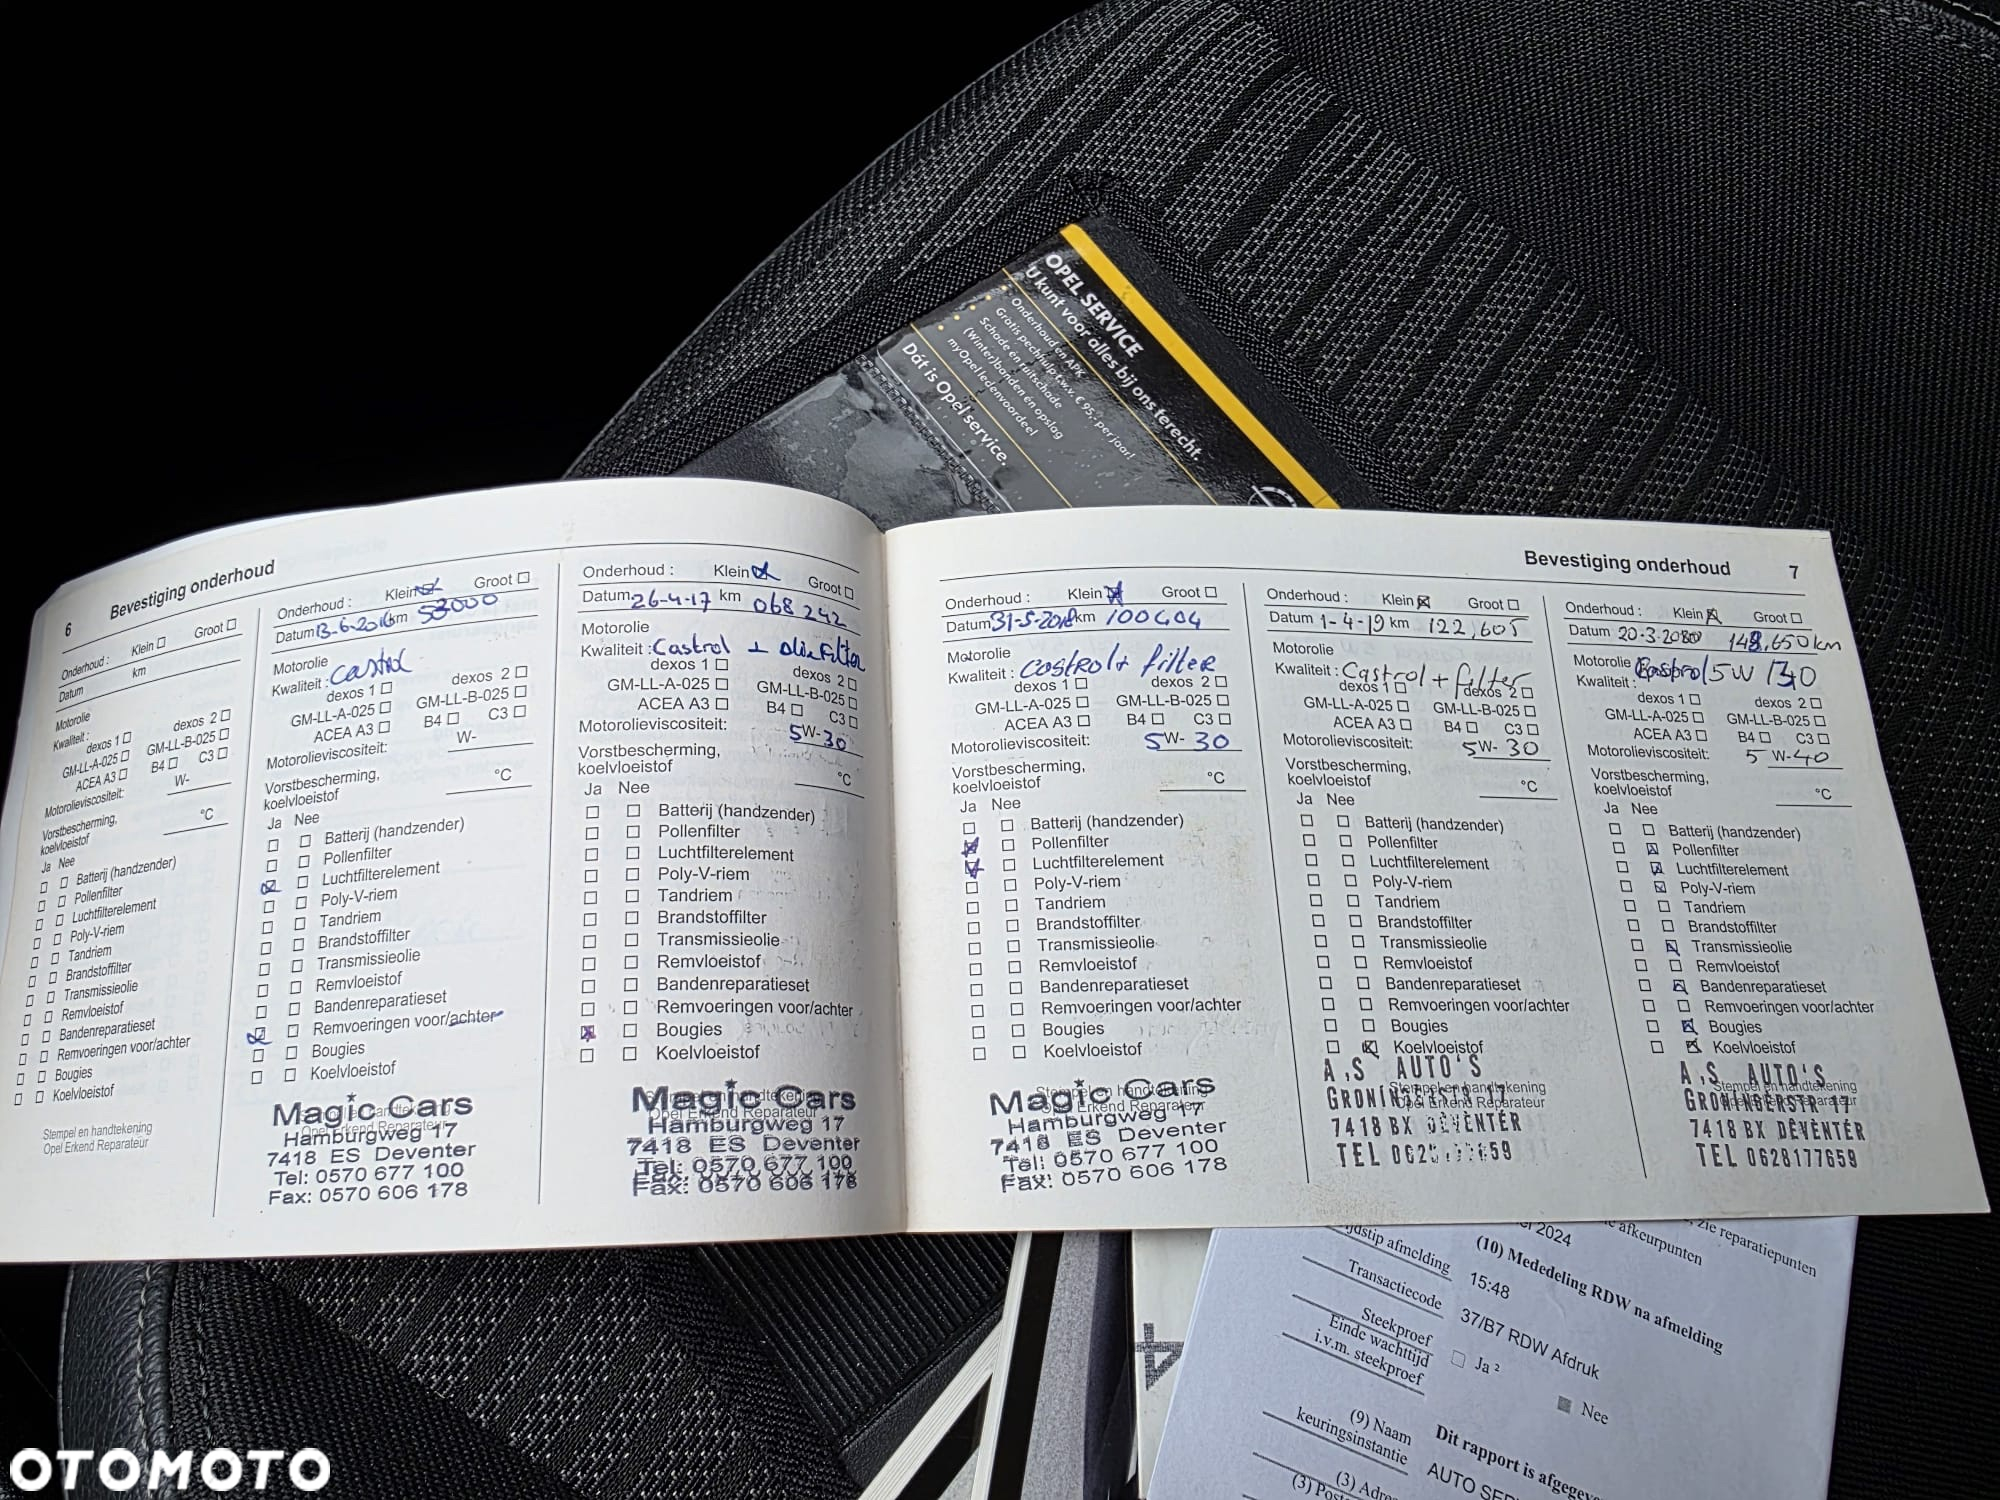 OPEL SERVICE
U kunt voor alles bij ons terecht.
Onderhoud en APK
Gratis pechhulp t.w.v. € 95,- per jaar!
Schade én ruitschade
(Winter)banden én opslag
myOpel ledenvoordeel
Dát is Opel service.
6 Bevestiging onderhoud
Onderhoud : Klein Groot
Datum km
Motorolie
Kwaliteit :
dexos 1 dexos 2
GM-LL-A-025 GM-LL-B-025
ACEA A3 B4 C3
Motorolieviscositeit: W-
Vorstbescherming,
koelvloeistof °C
Ja Nee
Batterij (handzender)
Pollenfilter
Luchtfilterelement
Poly-V-riem
Tandriem
Brandstoffilter
Transmissieolie
Remvloeistof
Bandenreparatieset
Remvoeringen voor/achter
Bougies
Koelvloeistof
Stempel en handtekening
Opel Erkend Reparateur
Onderhoud : Klein Groot
Datum 13-6-2016 km 53000
Motorolie
Kwaliteit : Castrol
dexos 1 dexos 2
GM-LL-A-025 GM-LL-B-025
ACEA A3 B4 C3
Motorolieviscositeit: W-
Vorstbescherming,
koelvloeistof °C
Ja Nee
Batterij (handzender)
Pollenfilter
Luchtfilterelement
Poly-V-riem
Tandriem
Brandstoffilter
Transmissieolie
Remvloeistof
Bandenreparatieset
Remvoeringen voor/achter
Bougies
Koelvloeistof
Stempel en handtekening
Opel Erkend Reparateur
Magic Cars
Hamburgweg 17
7418 ES Deventer
Tel: 0570 677 100
Fax: 0570 606 178
Onderhoud : Klein Groot
Datum 26-4-17 km 068 242
Motorolie
Kwaliteit : Castrol + oliefilter
dexos 1 dexos 2
GM-LL-A-025 GM-LL-B-025
ACEA A3 B4 C3
Motorolieviscositeit: 5W-30
Vorstbescherming,
koelvloeistof °C
Ja Nee
Batterij (handzender)
Pollenfilter
Luchtfilterelement
Poly-V-riem
Tandriem
Brandstoffilter
Transmissieolie
Remvloeistof
Bandenreparatieset
Remvoeringen voor/achter
Bougies
Koelvloeistof
Stempel en handtekening
Opel Erkend Reparateur
Magic Cars
Hamburgweg 17
7418 ES Deventer
Tel: 0570 677 100
Fax: 0570 606 178
Bevestiging onderhoud 7
Onderhoud : Klein Groot
Datum 31-5-2018 km 100404
Motorolie
Kwaliteit : Castrol + filter
dexos 1 dexos 2
GM-LL-A-025 GM-LL-B-025
ACEA A3 B4 C3
Motorolieviscositeit: 5W-30
Vorstbescherming,
koelvloeistof °C
Ja Nee
Batterij (handzender)
Pollenfilter
Luchtfilterelement
Poly-V-riem
Tandriem
Brandstoffilter
Transmissieolie
Remvloeistof
Bandenreparatieset
Remvoeringen voor/achter
Bougies
Koelvloeistof
Stempel en handtekening
Opel Erkend Reparateur
Magic Cars
Hamburgweg 17
7418 ES Deventer
Tel: 0570 677 100
Fax: 0570 606 178
Onderhoud : Klein Groot
Datum 1-4-19 km 122,605
Motorolie
Kwaliteit : Castrol + filter
dexos 1 dexos 2
GM-LL-A-025 GM-LL-B-025
ACEA A3 B4 C3
Motorolieviscositeit: 5W-30
Vorstbescherming,
koelvloeistof °C
Ja Nee
Batterij (handzender)
Pollenfilter
Luchtfilterelement
Poly-V-riem
Tandriem
Brandstoffilter
Transmissieolie
Remvloeistof
Bandenreparatieset
Remvoeringen voor/achter
Bougies
Koelvloeistof
Stempel en handtekening
Opel Erkend Reparateur
A.S AUTO'S
GRONINGERSTR 17
7418 BX DEVENTER
TEL
Onderhoud : Klein Groot
Datum 20-3-20 148,650 km
Motorolie Castrol 5W
Kwaliteit :
dexos 1 dexos 2
GM-LL-A-025 GM-LL-B-025
ACEA A3 B4 C3
Motorolieviscositeit: 5W-40
Vorstbescherming,
koelvloeistof °C
Ja Nee
Batterij (handzender)
Pollenfilter
Luchtfilterelement
Poly-V-riem
Tandriem
Brandstoffilter
Transmissieolie
Remvloeistof
Bandenreparatieset
Remvoeringen voor/achter
Bougies
Koelvloeistof
Stempel en handtekening
A.S AUTO'S
GRONINGERSTR 17
7418 BX DEVENTER
TEL 0628177659
2024 afkeurpunten , zie reparatiepunten
afmelding 15:48 (10) Mededeling RDW na afmelding
Transactiecode 37/B7 RDW Afdruk
Steekproef Ja ²
Einde wachttijd
i.v.m. steekproef Nee
(9) Naam
keuringsinstantie Dit rapport is
(3) AUTO
(3)
OTOMOTO